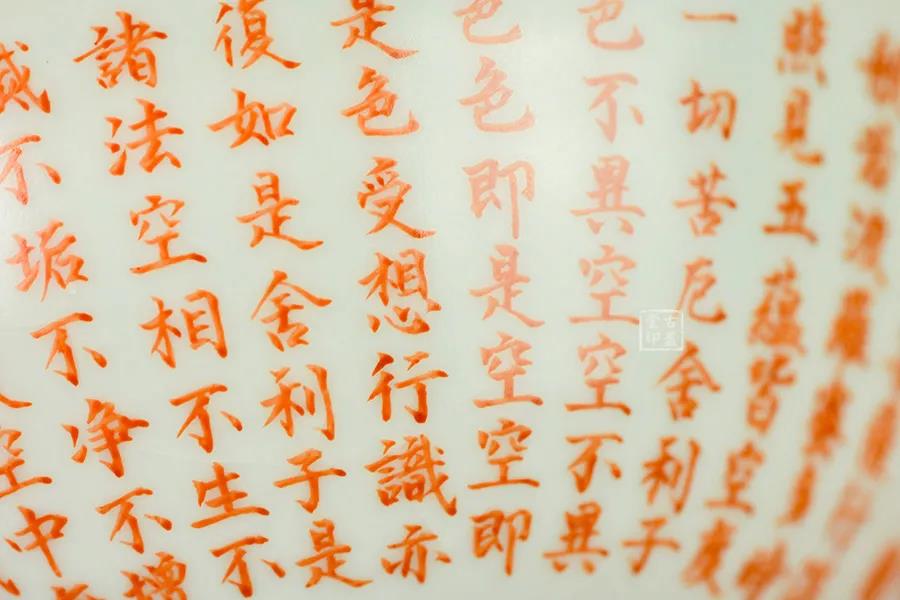 般若波羅蜜多
照見五蘊皆空度
一切苦厄舍利子
色不異空空不異
色色即是空空即
是色受想行識亦
復如是舍利子是
諸法空相不生不
滅不垢不淨不增
空中